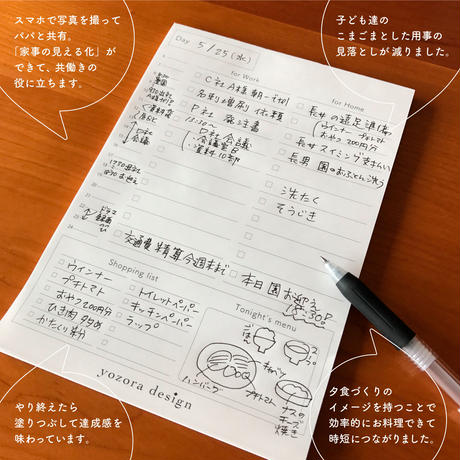 スマホで写真を撮って
パパと共有。
「家事の見える化」が
できて、共働きの
役に立ちます。
子ども達の
こまごまとした用事の
見落としが減りました。
Day 5/25(水)
for Work
C社A様朝一でtel
名刺増刷依頼
P社 発注書
D社会議
・会議室白
・資料10部
for Home
長女の遠足準備
ウインナー プチトマト
おやつ200円分
長女スイミング支払い
長男 園のおふとん洗う
洗たく
そうじき
D社
会議
17:30退社
ドラマ
録画
交通費精算今週末まで
本日園お迎え
18:30
Shopping list
ウインナー
プチトマト
おやつ200円分
ひき肉多め
かたくり粉
トイレットペーパー
キッチンペーパー
ラップ
Tonight's menu
ごはん
スープ
キャベツ
プチトマト
ハンバーグ
ナスの
チーズ
焼き
yozora design
やり終えたら
塗りつぶして達成感を
味わっています。
夕食づくりの
イメージを持つことで
効率的にお料理できて
時短につながりました。